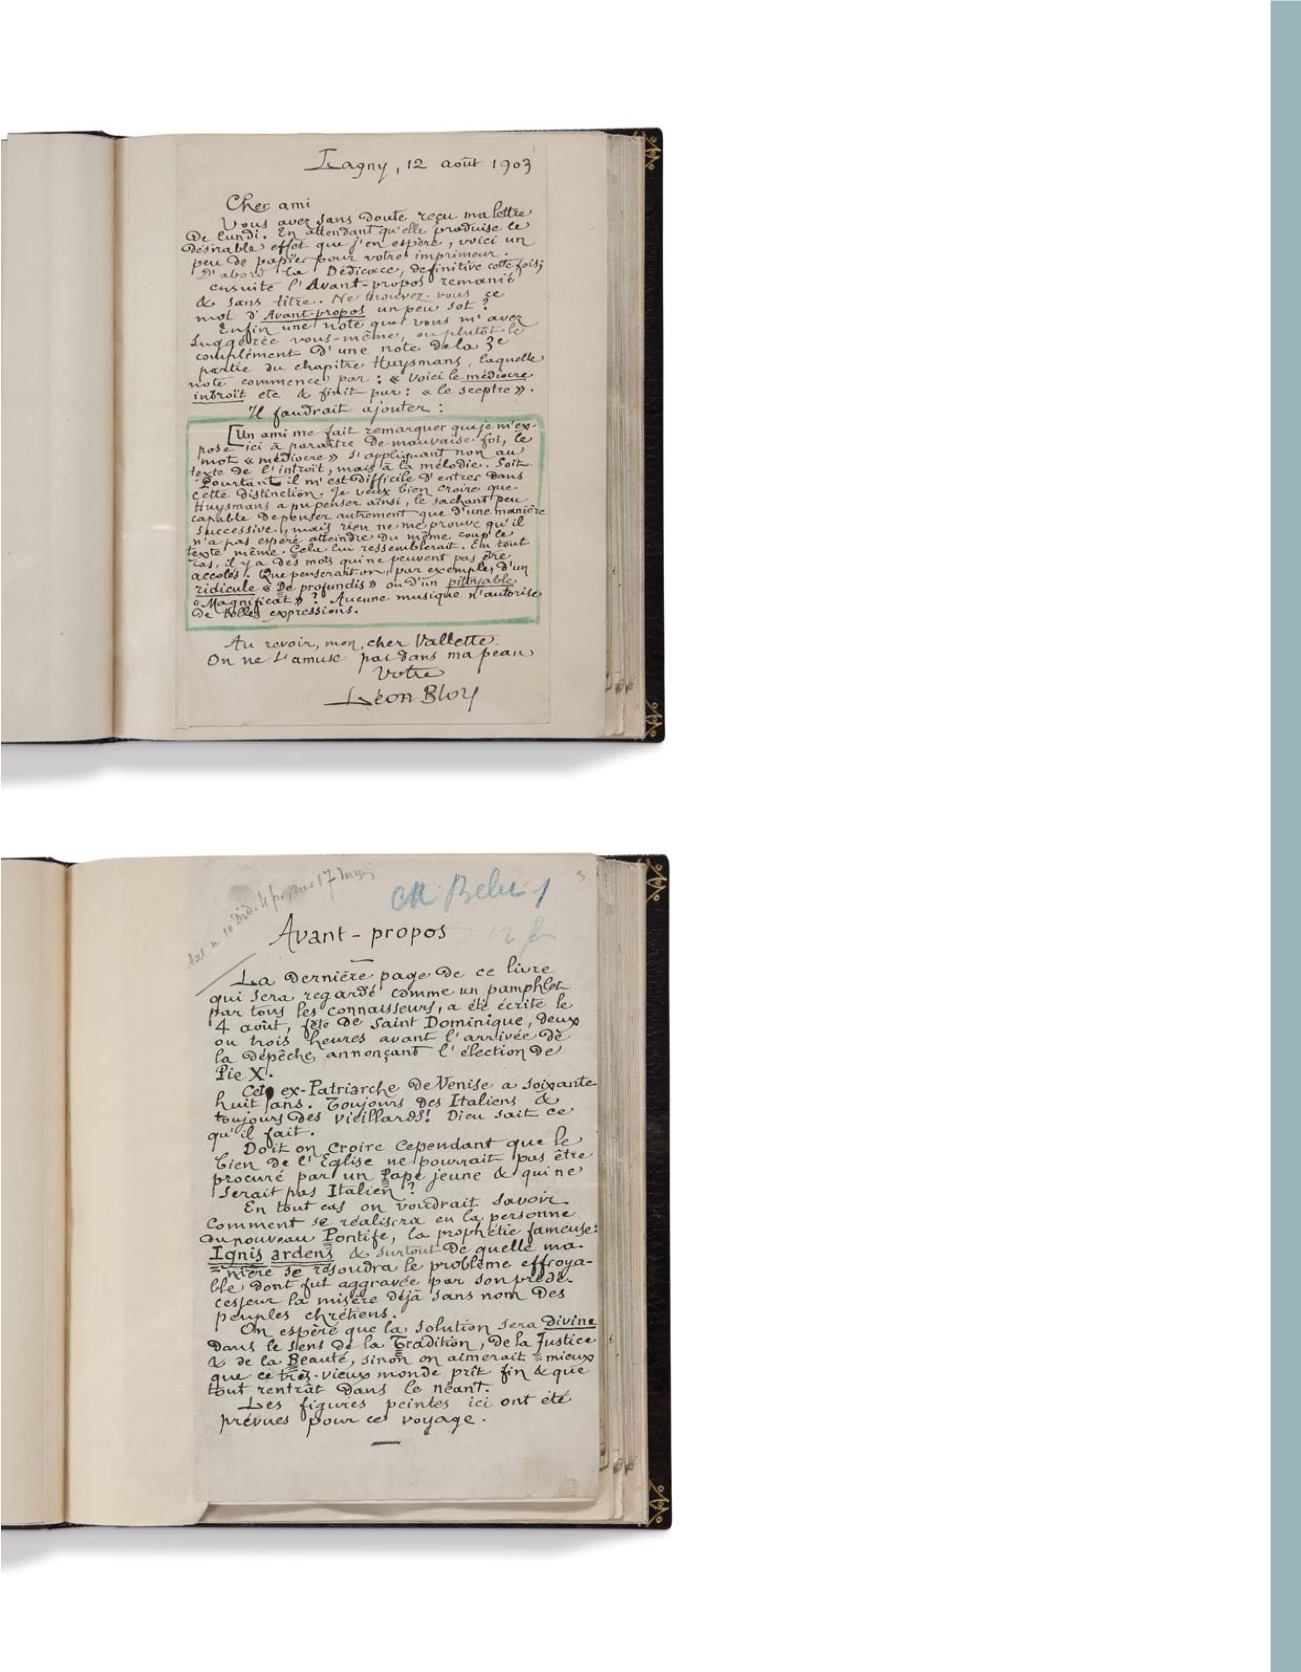 Lagny, 12 août 1903
Cher ami
Vous avez sans doute reçu ma lettre
de lundi. En attendant qu'elle produise le
désirable effet que j'en espère, voici un
peu de papier pour votre imprimeur.
D'abord la Dédicace, definitive cette fois;
ensuite l'Avant-propos remanié
& sans titre. Ne trouvez-vous ce
mot d'Avant-propos un peu sot ?
Enfin une note que vous m'avez
suggérée vous-même, ou plutôt le
complément d'une note de la 3e
partie du chapitre Huysmans, laquelle
note commence par : « Voici le médiocre
introït etc & finit par : « le sceptre ».
Il faudrait ajouter :
[Un ami me fait remarquer que je m'ex-
pose ici à paraître de mauvaise foi, le
mot « médiocre » s'appliquant non au
texte de l'introït, mais à la mélodie. Soit.
Pourtant il m'est difficile d'entrer dans
cette distinction. Je veux bien croire que
Huysmans a pu penser ainsi, le sachant peu
capable de penser autrement que d'une manière
successive, mais rien ne me prouve qu'il
n'a pas espéré atteindre du même coup le
texte même. Cela lui ressemblerait. En tout
cas, il y a des mots qui ne peuvent pas être
accolés. Que penserait-on, par exemple, d'un
ridicule « De profundis » ou d'un pitoyable
« Magnificat » ? Aucune musique n'autorise
de telles expressions.
Au revoir, mon cher Vallette.
On ne s'amuse pas dans ma peau
Votre
Léon Bloy
3.
Avant-propos
La dernière page de ce livre
qui sera regardé comme un pamphlet
par tous les connaisseurs, a été écrite le
4 août, fête de Saint Dominique, deux
ou trois heures avant l'arrivée de
la dépêche annonçant l'élection de
Pie X.
Cet ex-Patriarche de Venise a soixante
huit ans. Toujours des Italiens &
toujours des vieillards! Dieu sait ce
qu'il fait.
Doit on croire cependant que le
bien de l'Église ne pourrait pas être
procuré par un Pape jeune & qui ne
serait pas Italien ?
En tout cas on voudrait savoir
comment se réalisera en la personne
du nouveau Pontife, la prophétie fameuse:
Ignis ardens & surtout de quelle ma-
nière se résoudra le problème effroya-
ble dont fut aggravée par son prédé-
cesseur la misère déjà sans nom des
peuples chrétiens.
On espère que la solution sera divine
dans le sens de la Tradition, de la Justice
& de la Beauté, sinon on aimerait mieux
que ce très-vieux monde prît fin & que
tout rentrât dans le néant.
Les figures peintes ici ont été
prévues pour ce voyage.